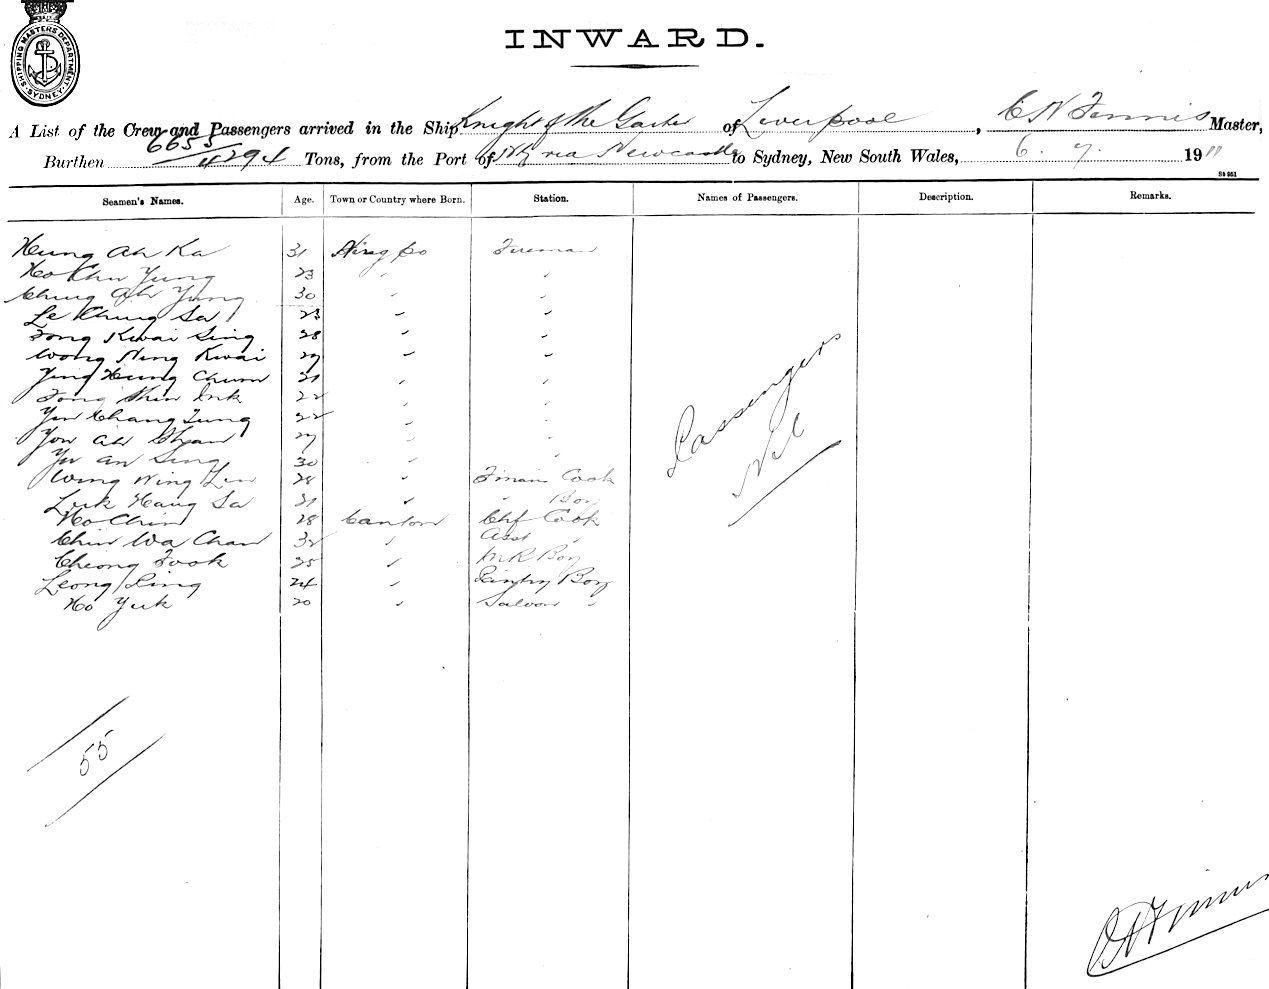 SHIPPING MASTERS DEPARTMENT SYDNEY
INWARD.
A List of the Crew and Passengers arrived in the Ship Knight of the Garter of Liverpool, C N Finnis Master,
Burthen 6655/4294 Tons, from the Port of NY via Newcastle to Sydney, New South Wales, 6. 7. 1911
St 951
Seamen's Names. Age. Town or Country where Born. Station. Names of Passengers. Description. Remarks.
Heung Ah Ka 31 Ningpo Fireman
Ho Chu Yung 23 " "
Ching Ah Yung 30 " "
Le Chung Sa 23 " "
Fong Kwai Sing 28 " "
Wong Ning Kwai 27 " "
Ying Heung Chum 21 " "
Fong Shin 22 " "
Yin Chang Tung 22 " "
You Ah 27 " "
Yu An Sing 30 " "
Wing Ning 28 " Firemn Cook
Luk Hang Sa 21 " " Boy
Ho Chin 28 Canton Chf Cook
Chin Wa Chan 32 " Asst "
Cheong Fook 25 " M R Boy
Leong Ling 24 " Pantry Boy
Ho Yuk 20 " Saloon "
Passengers
Nil
55
C N Finnis